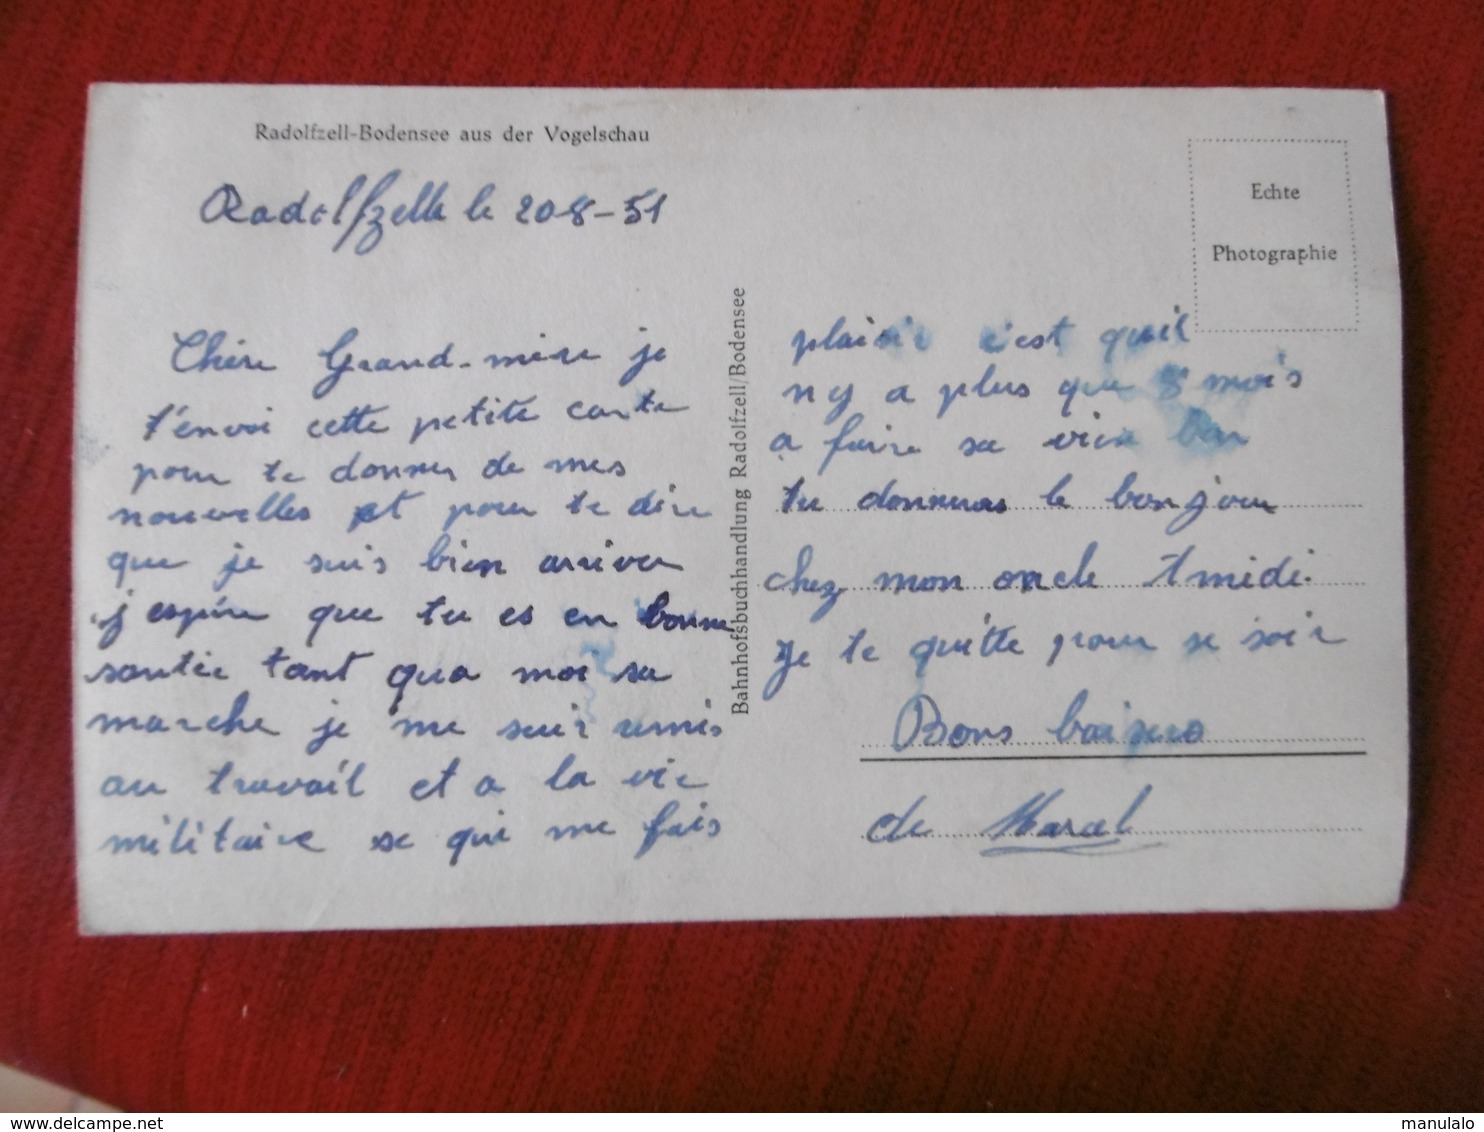 Radolfzell-Bodensee aus der Vogelschau
Radolfzelle le 20-8-51
Chère Grand-mère je
t'envoi cette petite carte
pour te donner de mes
nouvelles et pour te dire
que je suis bien arriver
j'espère que tu es en bonne
santée tant qua moi sa
marche je me suis remis
au travail et a la vie
militaire se qui me fais
Bahnhofsbuchhandlung Radolfzell/Bodensee
Echte
Photographie
plaisir c'est qu'il
n'y a plus que 8 mois
a faire sa vien ben
tu donneras le bonjour
chez mon oncle Amidi.
Je te quitte pour se soir
Bons baisers
de Marcel
manulalo